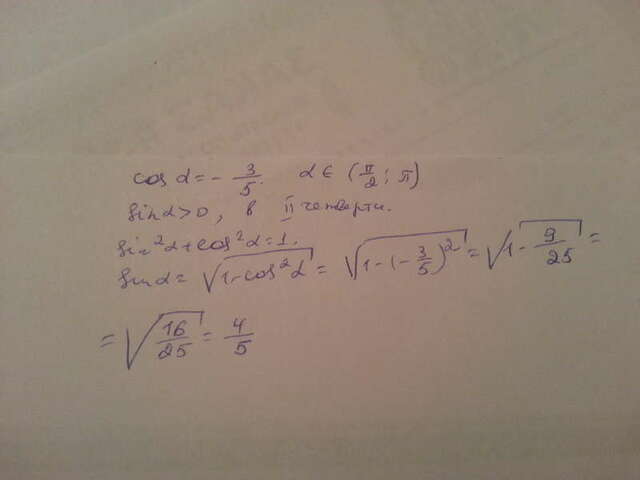 cos α = - 3/5. α ∈ (π/2; π)
sin α > 0, в II четверти.
sin²α + cos²α = 1.
sin α = √(1 - cos²α) = √(1 - (-3/5)²) = √(1 - 9/25) =
= √(16/25) = 4/5